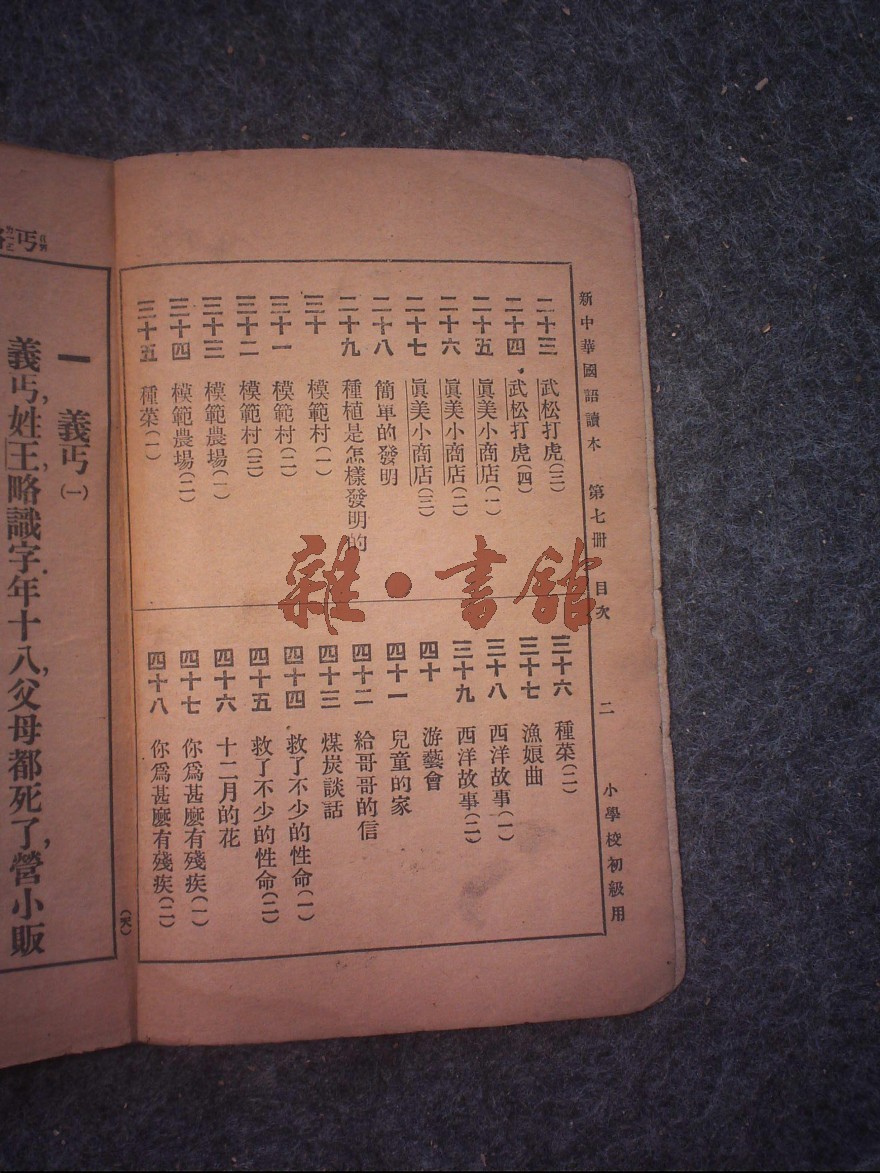 新中華國語讀本 第七冊 目次 二 小學校初級用
二十三 武松打虎(三)
二十四 武松打虎(四)
二十五 眞美小商店(一)
二十六 眞美小商店(二)
二十七 眞美小商店(三)
二十八 簡單的發明
二十九 種植是怎樣發明的
三十 模範村(一)
三十一 模範村(二)
三十二 模範村(三)
三十三 模範農場(一)
三十四 模範農場(二)
三十五 種菜(一)
三十六 種菜(二)
三十七 漁娘曲
三十八 西洋故事(一)
三十九 西洋故事(二)
四十 游藝會
四十一 兒童的家
四十二 給哥哥的信
四十三 煤炭談話
四十四 救了不少的性命(一)
四十五 救了不少的性命(二)
四十六 十二月的花
四十七 你爲甚麼有殘疾(一)
四十八 你爲甚麼有殘疾(二)
雜·書館
丐
一 義丐(一)
義丐,姓王,略識字年十八,父母都死了,營小販